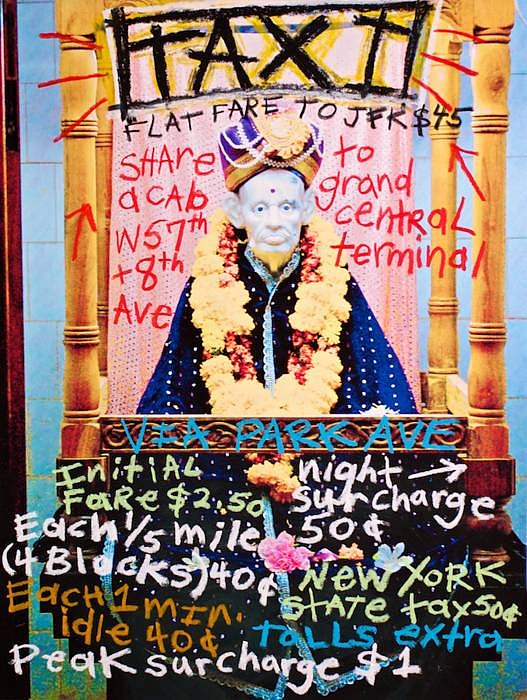 TAXI
FLAT FARE TO JFK $45
SHARe
a CAb
W57th
+8th
AVe
to
grand
centRaL
terminal
VIA PARK AVE
InitiAL
FaRe $2.50
night →
surcharge
50¢
Each 1/5 mile
(4 Blocks) 40¢
Each 1 min.
idle 40¢
New YoRK
STATe tax 50¢
toLLs extra
Peak surcharge $1